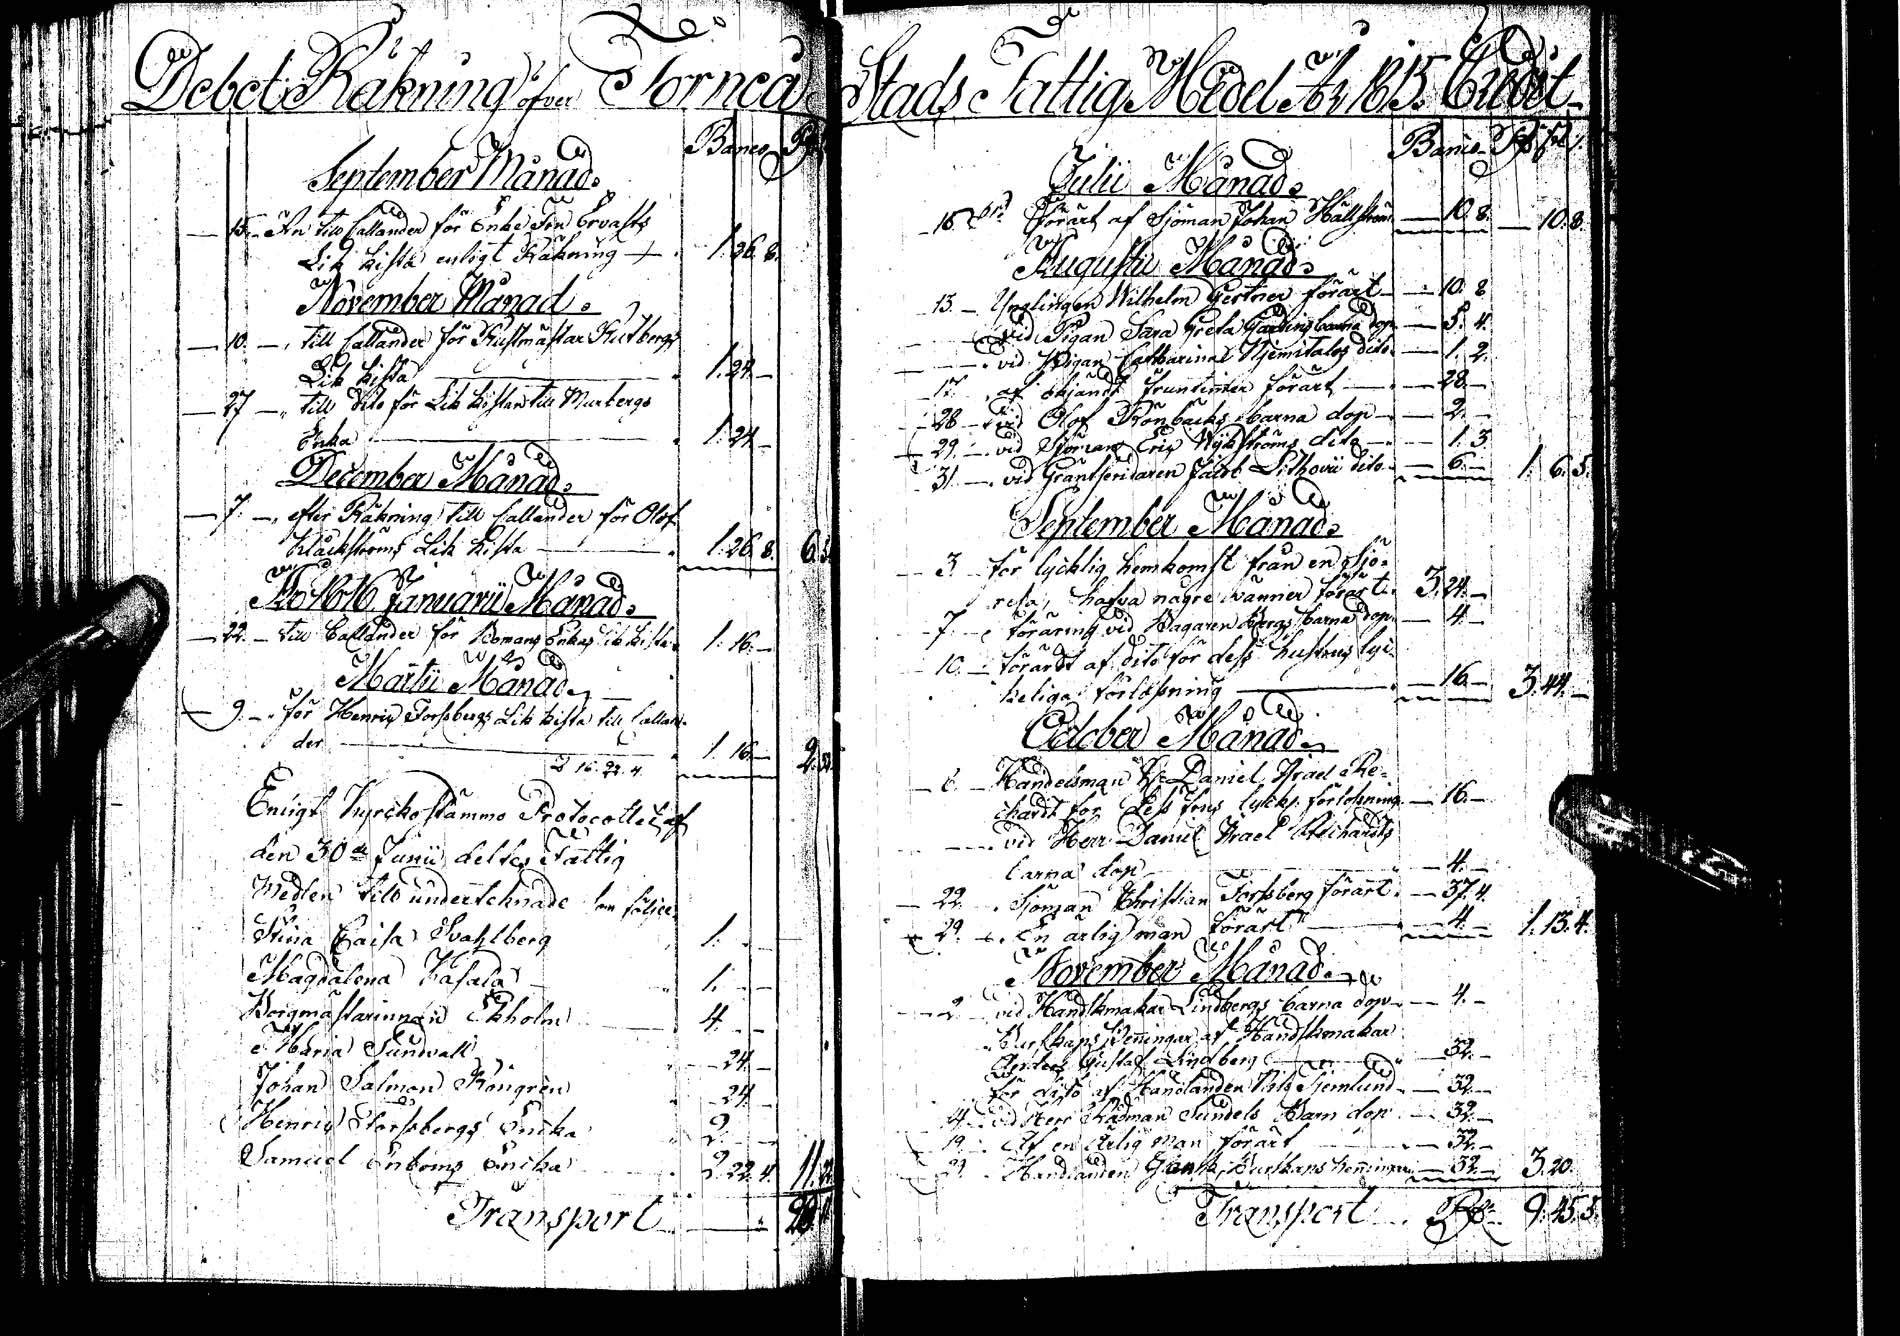 Debet Räkning öfver Torneå
Banco
September Månad.
15. Än till Callander för Enke Fru Ervasts
Lik kista enligt Räkning 1. 26. 8.
November Månad.
10. till Callander för Rustmästar
Lik kista 1. 24.
27 till dito för Lik kistan till Murbergs
Enka 1. 24.
December Månad.
7. efter Räkning till Callander för Olof
Kläckströms Lik kista 1. 26. 8. 6.
Ao 1816 Januarii Månad.
22. till Callander för Romans Enkas lik kista 1. 16.
Martii Månad.
9. för Henric Forssbergs Lik kista till Callan-
der 1. 16. 2.
16. 22. 4.
Enligt Kyrckostämmo Protocollet af
den 30de Junii deltes Fattig
Medlen till undertecknade som följer
Stina Caisa Svahlberg 1.
Magdalena Kafala 1.
Borgmästarinnan Ekholm 4.
Maria Sundvall 24.
Johan Salmon Röngrén 24.
Henric Forssbergs Enka 2.
Samuel Enboms Enka 2. 22. 4. 11.
Transport
Stads Fattig Medel År 1815. Credit
Banco
Julii Månad.
16. förärt af Sjöman Johan Hällström 10. 8. 10. 8.
Augustii Månad.
13. Ynglingen Wilhelm Gertner förärt 10. 8
vid Pigan Sara Greta barna dop 5. 4.
vid Pigan Catharina Niemitalos dito 1. 2.
17. af okjändt fruntimer förärt 28.
28 vid Olof Rönbäcks barna dop 2.
29. vid Sjöman Eric Wijkströms dito 1. 3
31 vid Gräntseridaren Jacob Lithovii dito 6. 1. 6. 5.
September Månad.
3. för lycklig hemkomst från en sjö-
resa, hafva några vänner förärt 3. 24.
7. föräring vid Bagaren Bergs barna dop 4.
10. förärdt af dito för dess hustrus lyc-
keliga förlossning 16. 3. 44.
October Månad.
6 Handelsman Hr Daniel Israel Re-
chardt för dess frus lyckl. förlosning 16.
vid Herr Daniel Israel Reichardts
barna dop 4.
22. Sjöman Christian Forssberg förärt 37. 4.
29. En ärlig man förärt 4. 1. 13. 4.
November Månad.
2 vid Handskmakar Lindbergs barna dop 4.
Burskaps Penningar af Handskmakar
Anders Gustaf Lindberg 32.
för dito af Handlanden Nils Sjemlund 32.
4. vid Herr Rådman Sundels Barn dop 32.
19. Af en ärlig man förärt 32.
Handlanden Burskaps penningar 32. 3. 20.
Transport 9. 45. 5.